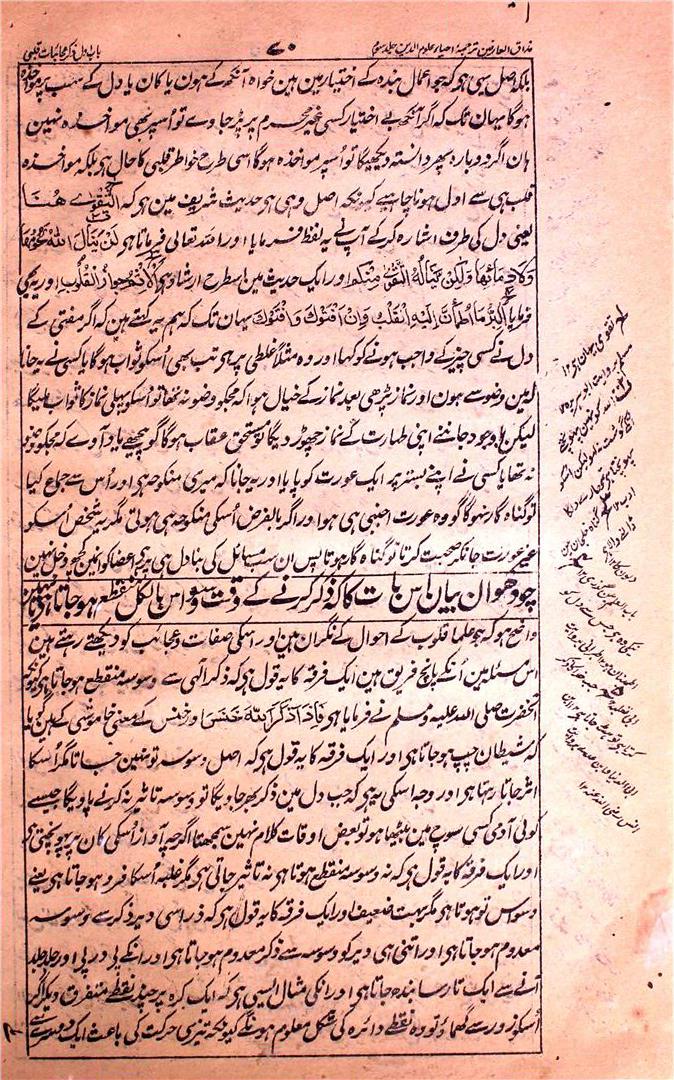 مذاق العارفین ترجمۂ احیاء علوم الدین جلد سوم
۷۰
باب اول ذکر عجائبات قلبی
بلکہ اصل یہی ہو کہ جو اعمال بندہ کے اختیار مین ہین خواہ آنکھ کے ہون یا کان یا دل کے سب پر مواخذہ
ہوگا یہان تک کہ اگر آنکھ بے اختیار کسی غیر محرم پر پڑ جاوے تو اُسپر بھی مواخذہ نہین
ہان اگر دوبارہ پھر دانستہ دیکھیگا تو اُسپر مواخذہ ہوگا اسی طرح خواطر قلبی کا حال ہی بلکہ مواخذہ
قلب ہی سے اول ہونا چاہیے کیونکہ اصل وہی ہو حدیث شریف مین ہو کہ التَّقْوٰی ھٰھُنَا
یعنی دل کی طرف اشارہ کر کے آپ نے یہ لفظ فرمایا اور اللہ تعالی فرماتا ہو لَنْ یَّنَالَ اللّٰهَ لُحُوْمُهَا
وَلَا دِمَآؤُهَا وَلٰکِنْ یَّنَالُهُ التَّقْوٰی مِنْکُمْ اور ایک حدیث مین اسطرح ارشاد ہی اَلْاِثْمُ حَوَازُّ الْقُلُوْبِ اور یہ بھی
فرمایا اَلْبِرُّ مَا اطْمَأَنَّ اِلَیْهِ الْقَلْبُ وَاِنْ اَفْتَوْكَ وَاَفْتَوْكَ یہان تک کہ ہم یہ کہتے ہین کہ اگر مفتی کے
دل نے کسی چیز کے واجب ہونے کو کہا اور وہ مثلاً غلطی پر ہی تب بھی اُسکو ثواب ہوگا یا کسی نے یہ جانا
کہ مین وضو سے ہون اور نماز پڑھی بعد نماز کے خیال ہوا کہ مجکو وضو نہ تھا تو اُسکو پہلی نماز کا ثواب ملیگا
لیکن باوجود جاننے اپنی طہارت کے نماز چھوڑ دیگا تو مستحق عقاب ہوگا گو پیچھے یاد آوے کہ مجکو وضو
نہ تھا یا کسی نے اپنے بستر پر ایک عورت کو پایا اور یہ جانا کہ میری منکوحہ ہی اور اُس سے جماع کیا
تو گناہ گار نہوگا گو وہ عورت اجنبی ہی ہو اور اگر بالفرض اُسکی منکوحہ ہی ہوتی مگر یہ شخص اُسکو
غیر عورت جانکر صحبت کرتا تو گناہ گار ہوتا پس ان سب مسائل کی بنا دل ہی پر ہی اعضا کو انمین کچھ دخل نہین
چودھوان بیان اس بات کا کہ ذکر کرنے کے وقت وسواس بالکل منقطع ہو جاتا ہی یا نہین
واضح ہو کہ جو علما قلوب کے احوال کے نگران ہین اور اسکی صفات و عجائب کو دیکھتے رہتے ہین
اس مسئلہ مین اُنکے پانچ فریق ہین ایک فرقہ کا یہ قول ہی کہ ذکر الہی سے وسوسہ منقطع ہو جاتا ہی کیونکہ
آنحضرت صلی اللہ علیہ وسلم نے فرمایا ہو فَاِذَا ذَکَرَ اللّٰهَ خَنَسَ اور خنس کے معنی خاموشی کے ہین گویا
کہ شیطان چپ ہو جاتا ہی اور ایک فرقہ کا یہ قول ہی کہ اصل وسوسہ تو نہین جاتا مگر اُسکا
اثر جاتا رہتا ہی اور وجہ اسکی یہ ہی کہ جب دل مین ذکر بھر جاویگا تو وسوسہ تاثیر نہ کرنے پاویگا جیسے
کوئی آدمی کسی سوچ مین بیٹھا ہو تو بعض اوقات کلام نہین سمجھتا اگرچہ آواز اُسکی کان پر پہونچتی ہی
اور ایک فرقہ کا یہ قول ہی کہ نہ وسوسہ منقطع ہوتا ہی نہ تاثیر جاتی ہی مگر غلبہ اُسکا فرو ہو جاتا ہی یعنے
وسواس تو ہوتا ہی مگر بہت ضعیف اور ایک فرقہ کا یہ قول ہی کہ ذرا سی دیر ذکر سے وسوسہ
معدوم ہو جاتا ہی اور اتنی ہی دیر کو وسوسہ سے ذکر معدوم ہو جاتا ہی اور انکے پی در پی اور جلد جلد
آنے سے ایک تار سا بندھ جاتا ہی اور انکی مثال ایسی ہی کہ ایک کرہ پر چند نقطے متفرق دیکر اگر
اُسکو زور سے گھماؤ تو وہ نقطے دائرہ کی شکل معلوم ہونگے کیونکہ تیزی حرکت کی باعث ایک دوسرے سے